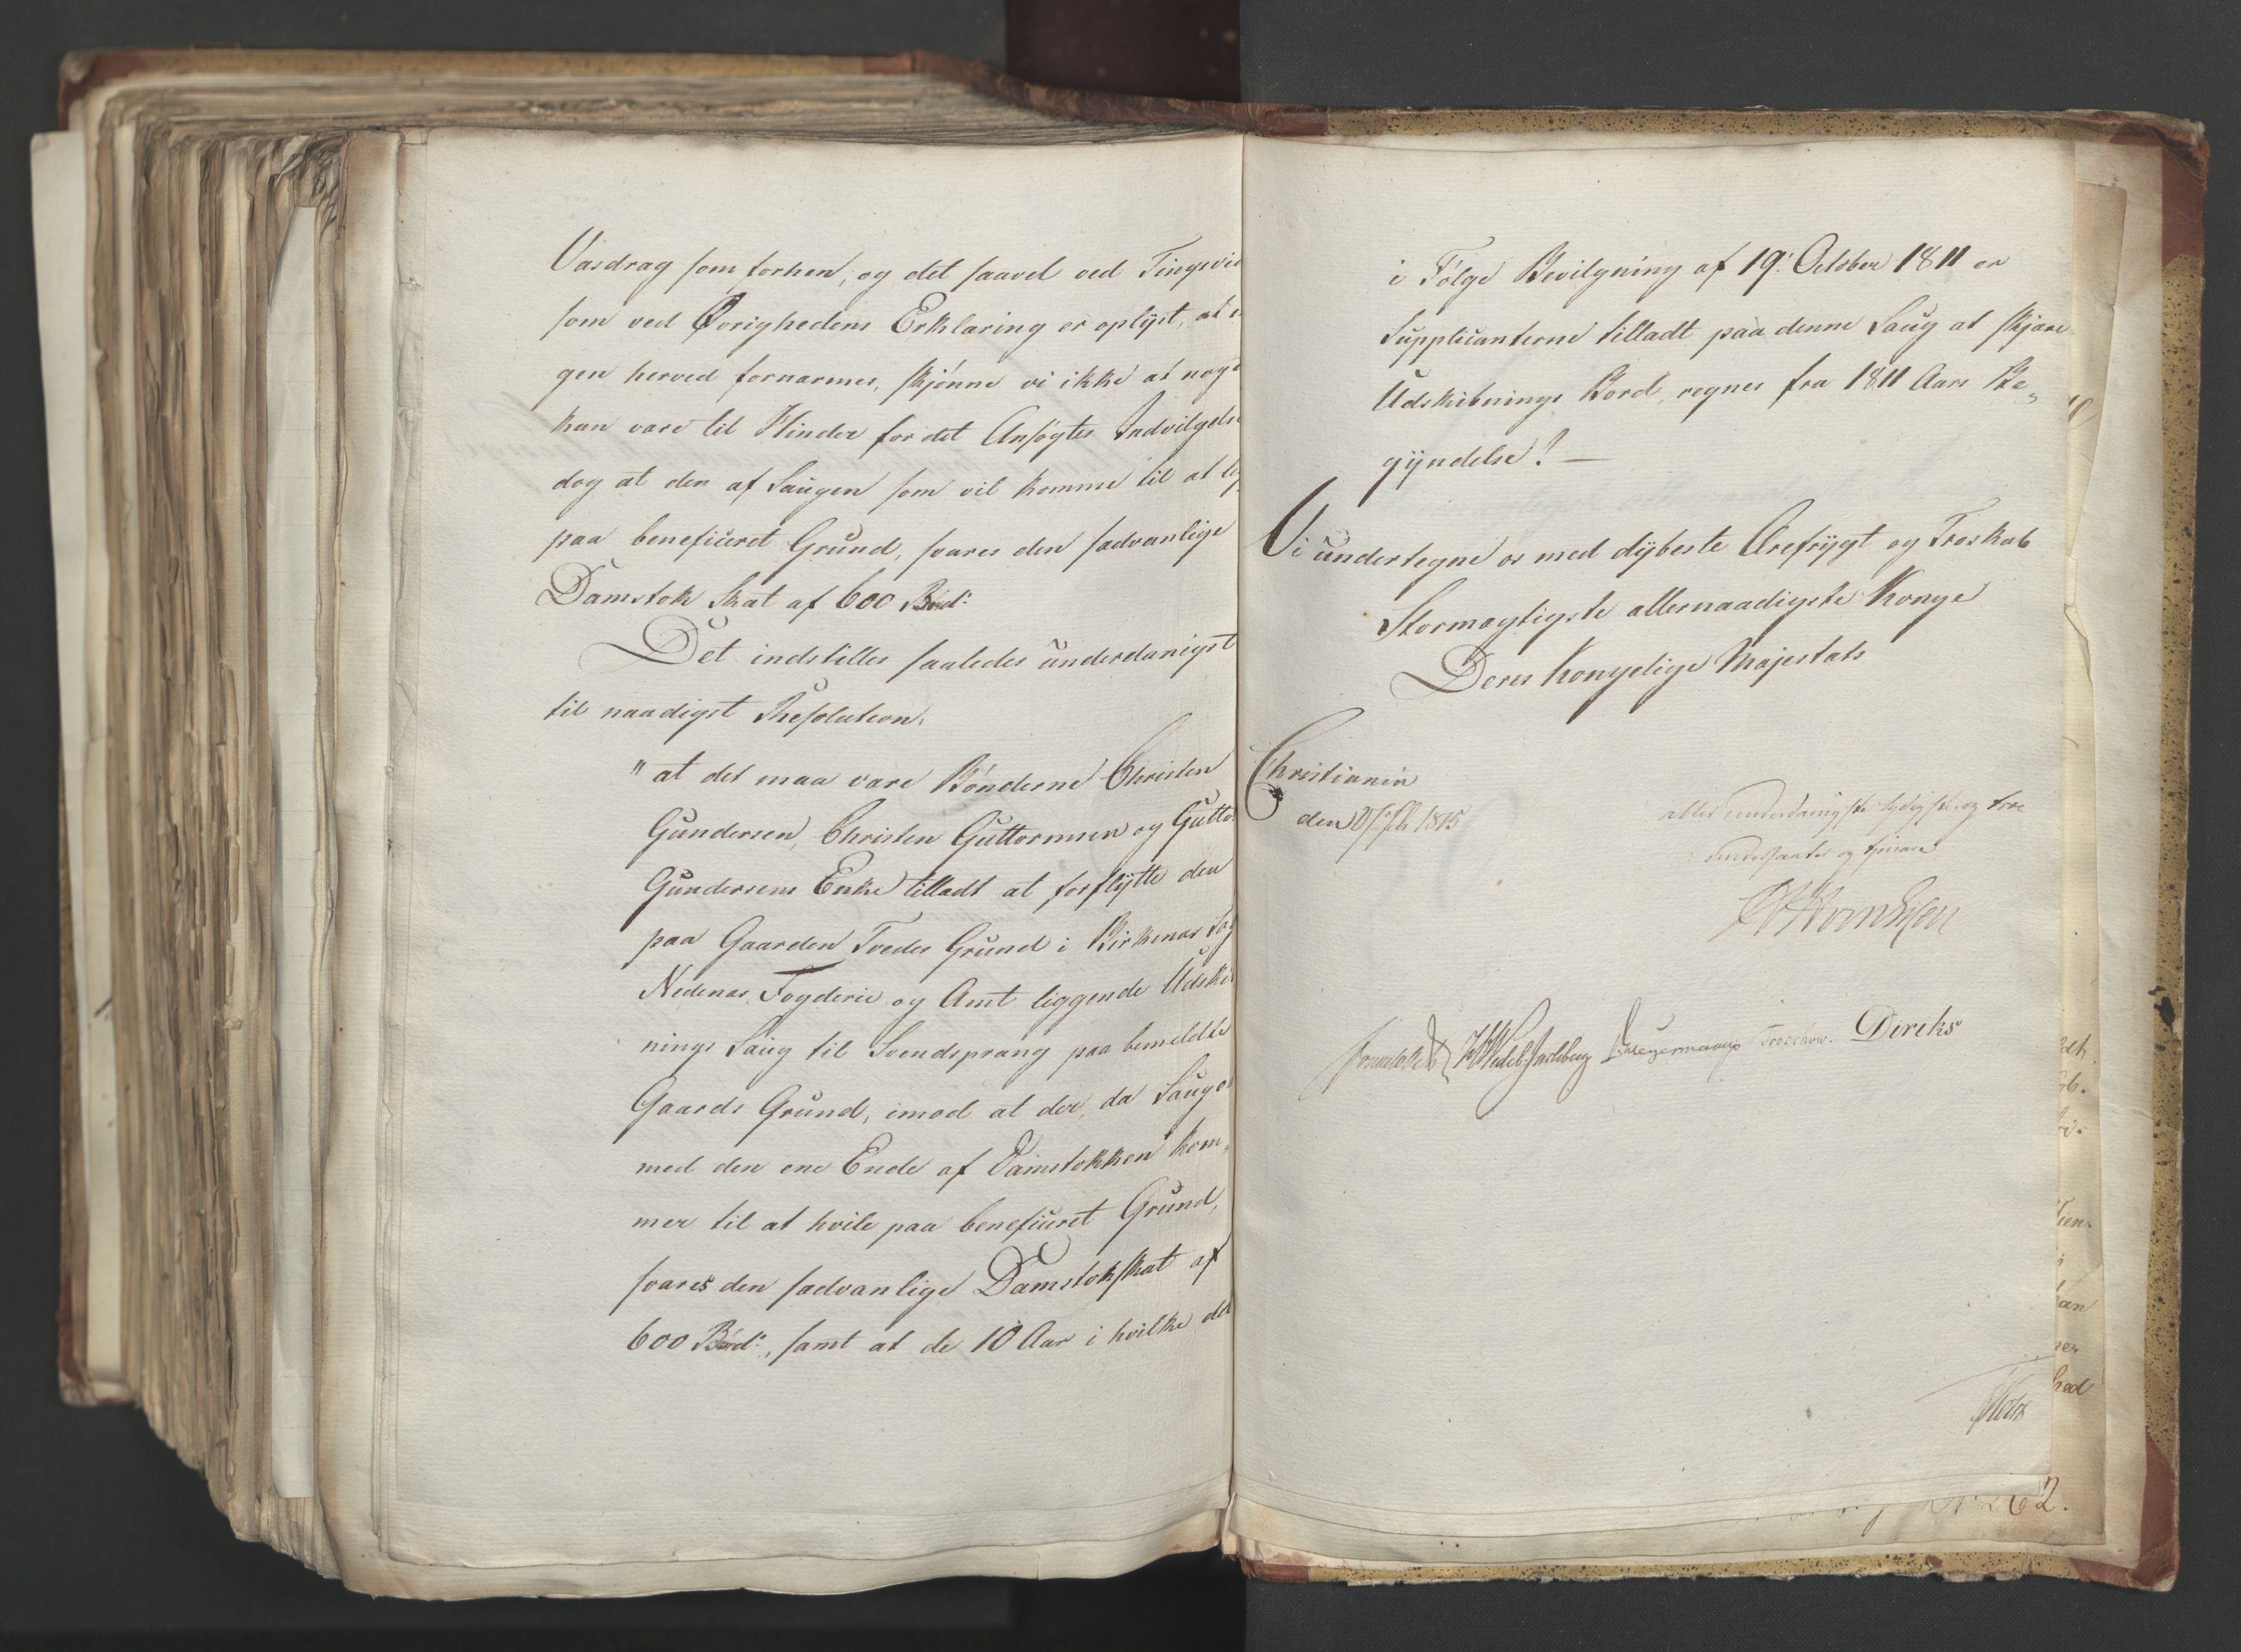 Vasdrag som forhen, og det saavel ved Tingsvid
som ved Øvrighedens Erklæring er oplÿst, at i
gen herved fornærmes, skjönne vi ikke at noge
kan være til Hinder for det Ansögtes Indvilgelse
dog at der af Saugen som vil komme til at lig
paa beneficeret Grund, svares den sædvanlige
Damstok Skat af 600 Bord:
Det indstilles saaledes underdanigst
til naadigst Resolution:
"at det maa være Bönderne Christen
Gundersen, Christen Guttormsen og Gutto
Gundersens Enke tilladt at forflÿtte den
paa Gaarden Tvedes Grund i Birkenæs Sog
Nedenæs Fogderie og Amt liggende Udskib
nings Saug til Svendsprang paa bemeldte
Gaards Grund, imod at der, da Sauge
med den ene Ende af Damstokken kom„
mer til at hvile paa beneficeret Grund,
svares den sædvanlige Damstokskat af
600 Bord:, samt at de 10 Aar i hvilke det
i Fölge Bevilgning af 19: October 1811 er
Supplicanterne tilladt paa denne Saug at skjære
Udskibnings Bord, regnes fra 1811 Aars Be„
gÿndelse! —
Vi undertegne os med dÿbeste Ærefrÿgt og Troskab
Stormægtigste allernaadigste Konge
Deres Kongelige Majestæts
Christiania
den 1815
aller underdanigste lydigste og troe
undersaatter og tjenere
Sommerhielm HWedel Jarlsberg Treschow. Diriks
Motz
262.